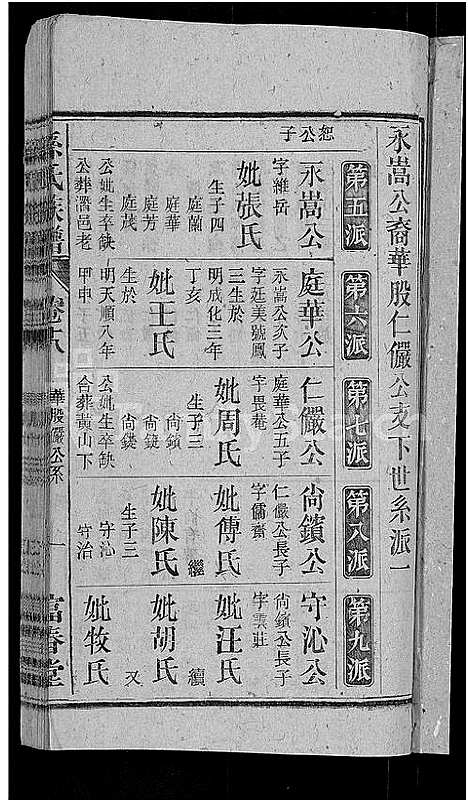 永嵩公裔華股仁儼公支下世系派一
第五派
恕公子
永嵩公
字維岳
妣張氏
生子四
庭蘭
庭華
庭芳
庭茂
公妣生卒缺
公葬潛邑老
第六派
庭華公
永嵩公次子
字廷美號鳳
三生於
明成化三年
丁亥
妣王氏
生於
明天順八年
甲申
第七派
仁儼公
庭華公五子
字畏菴
妣周氏
生子三
尙鑌
尙鏡
尙鏤
公妣生卒缺
合葬黃山下
第八派
尙鑌公
仁儼公長子
字儒齋
妣傅氏
繼
妣陳氏
生子三
守沁
守治
第九派
守沁公
尙鑌公長子
字莊
妣汪氏
續
妣胡氏
又
妣牧氏
孫氏族譜
卷十八
華股儼公系
一
富春堂